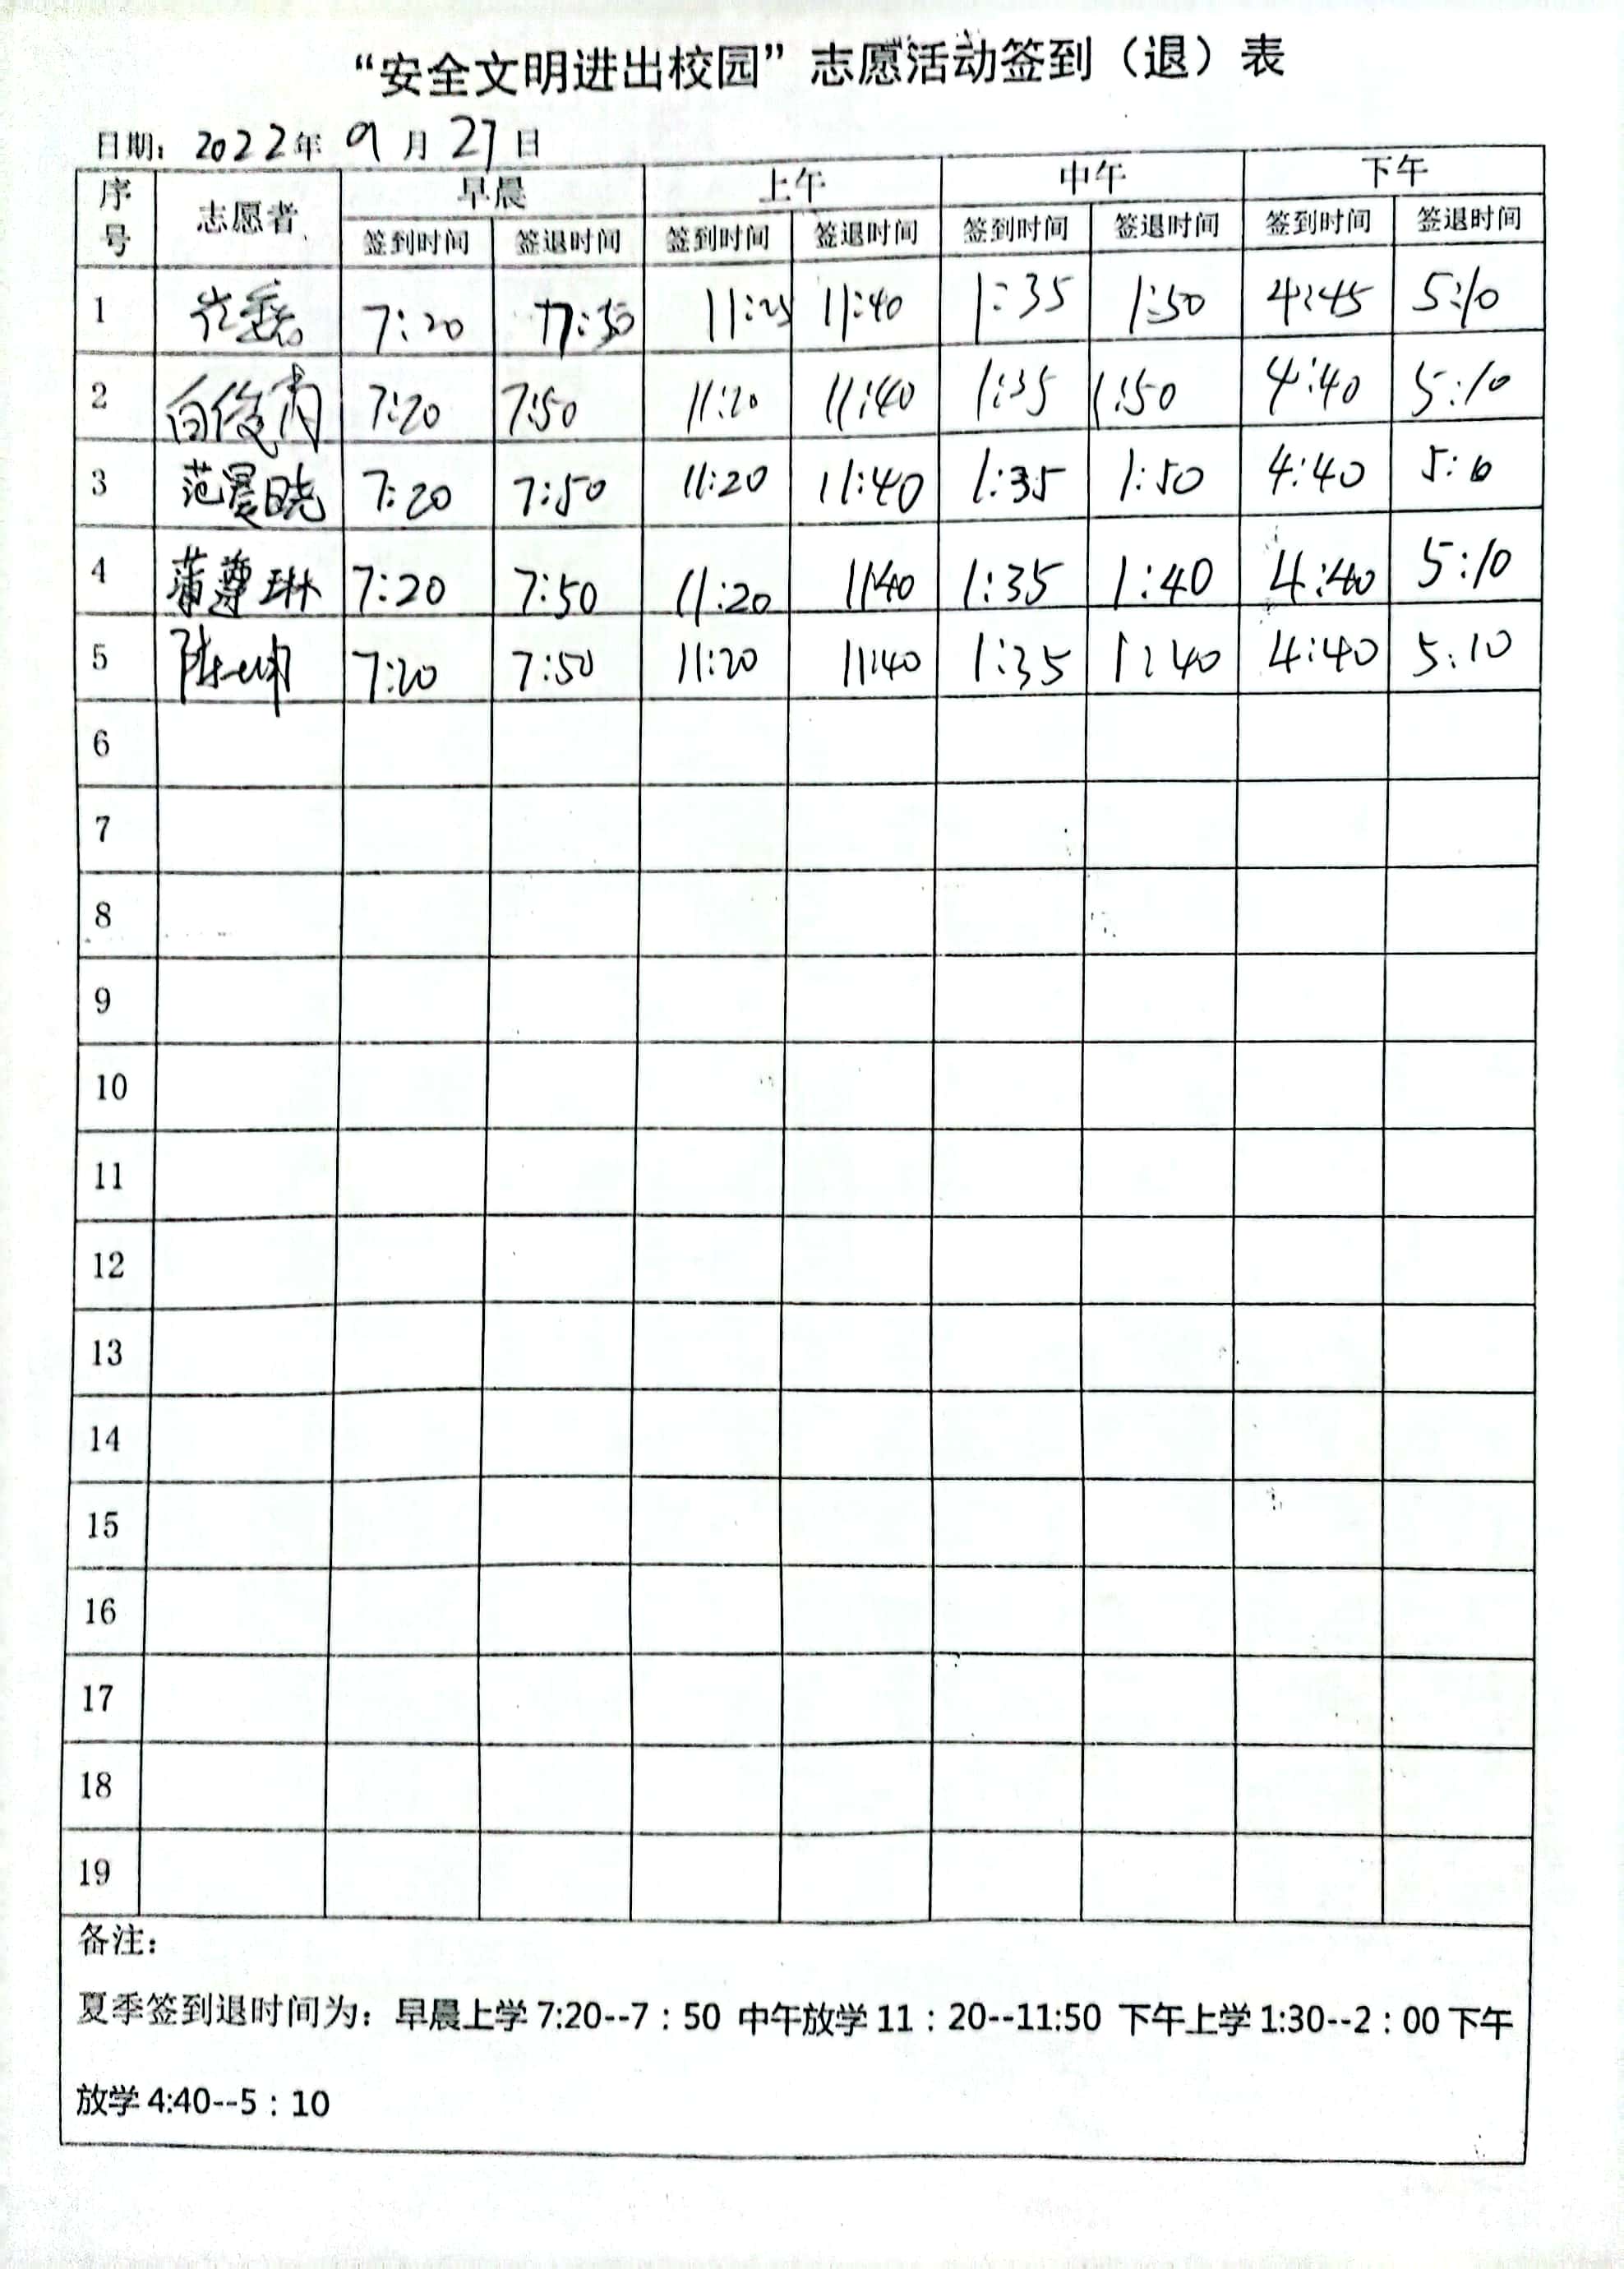 “安全文明进出校园”志愿活动签到（退）表
日期：2022年 9月 27日
序号 志愿者 早晨 上午 中午 下午
签到时间 签退时间 签到时间 签退时间 签到时间 签退时间 签到时间 签退时间
1 7:20 7:50 11:25 11:40 1:35 1:50 4:45 5:10
2 白俊青 7:20 7:50 11:20 11:40 1:35 1:50 4:40 5:10
3 范晨晓 7:20 7:50 11:20 11:40 1:35 1:50 4:40 5:10
4 蒲尊琳 7:20 7:50 11:20 11:40 1:35 1:40 4:40 5:10
5 7:20 7:50 11:20 11:40 1:35 1:40 4:40 5:10
6
7
8
9
10
11
12
13
14
15
16
17
18
19
备注：
夏季签到退时间为：早晨上学7:20--7：50 中午放学11：20--11:50 下午上学1:30--2：00下午
放学4:40--5：10